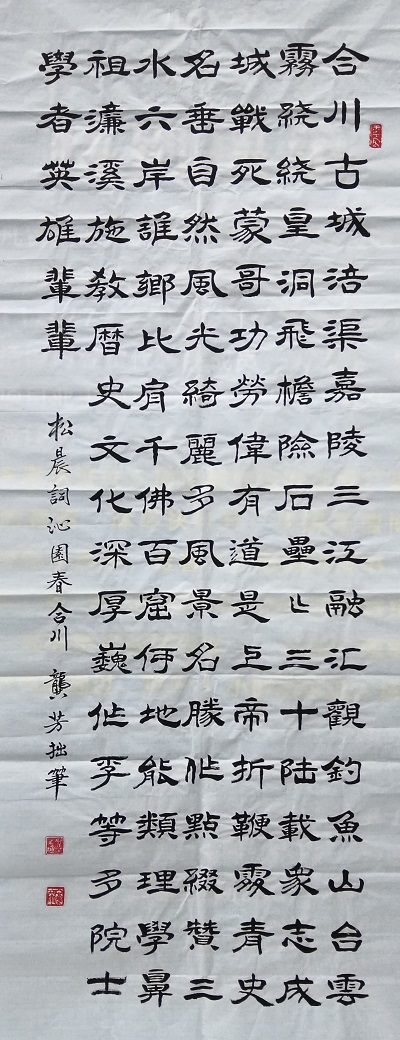 合川古城涪渠嘉陵三江融汇觀釣魚山台雲
霧繞繞皇洞飛檐險石壘三十陆載衆志成
城戰死蒙哥功勞偉有道是上帝折鞭處青史
名垂自然風光綺麗多風景名勝作點綴贊三
水六岸誰鄉比肩千佛百窟何地能類理學鼻
祖濂溪施教曆史文化深厚巍作李等多院士
學者英雄輩輩
松晨詞沁園春合川 龔芳拙筆